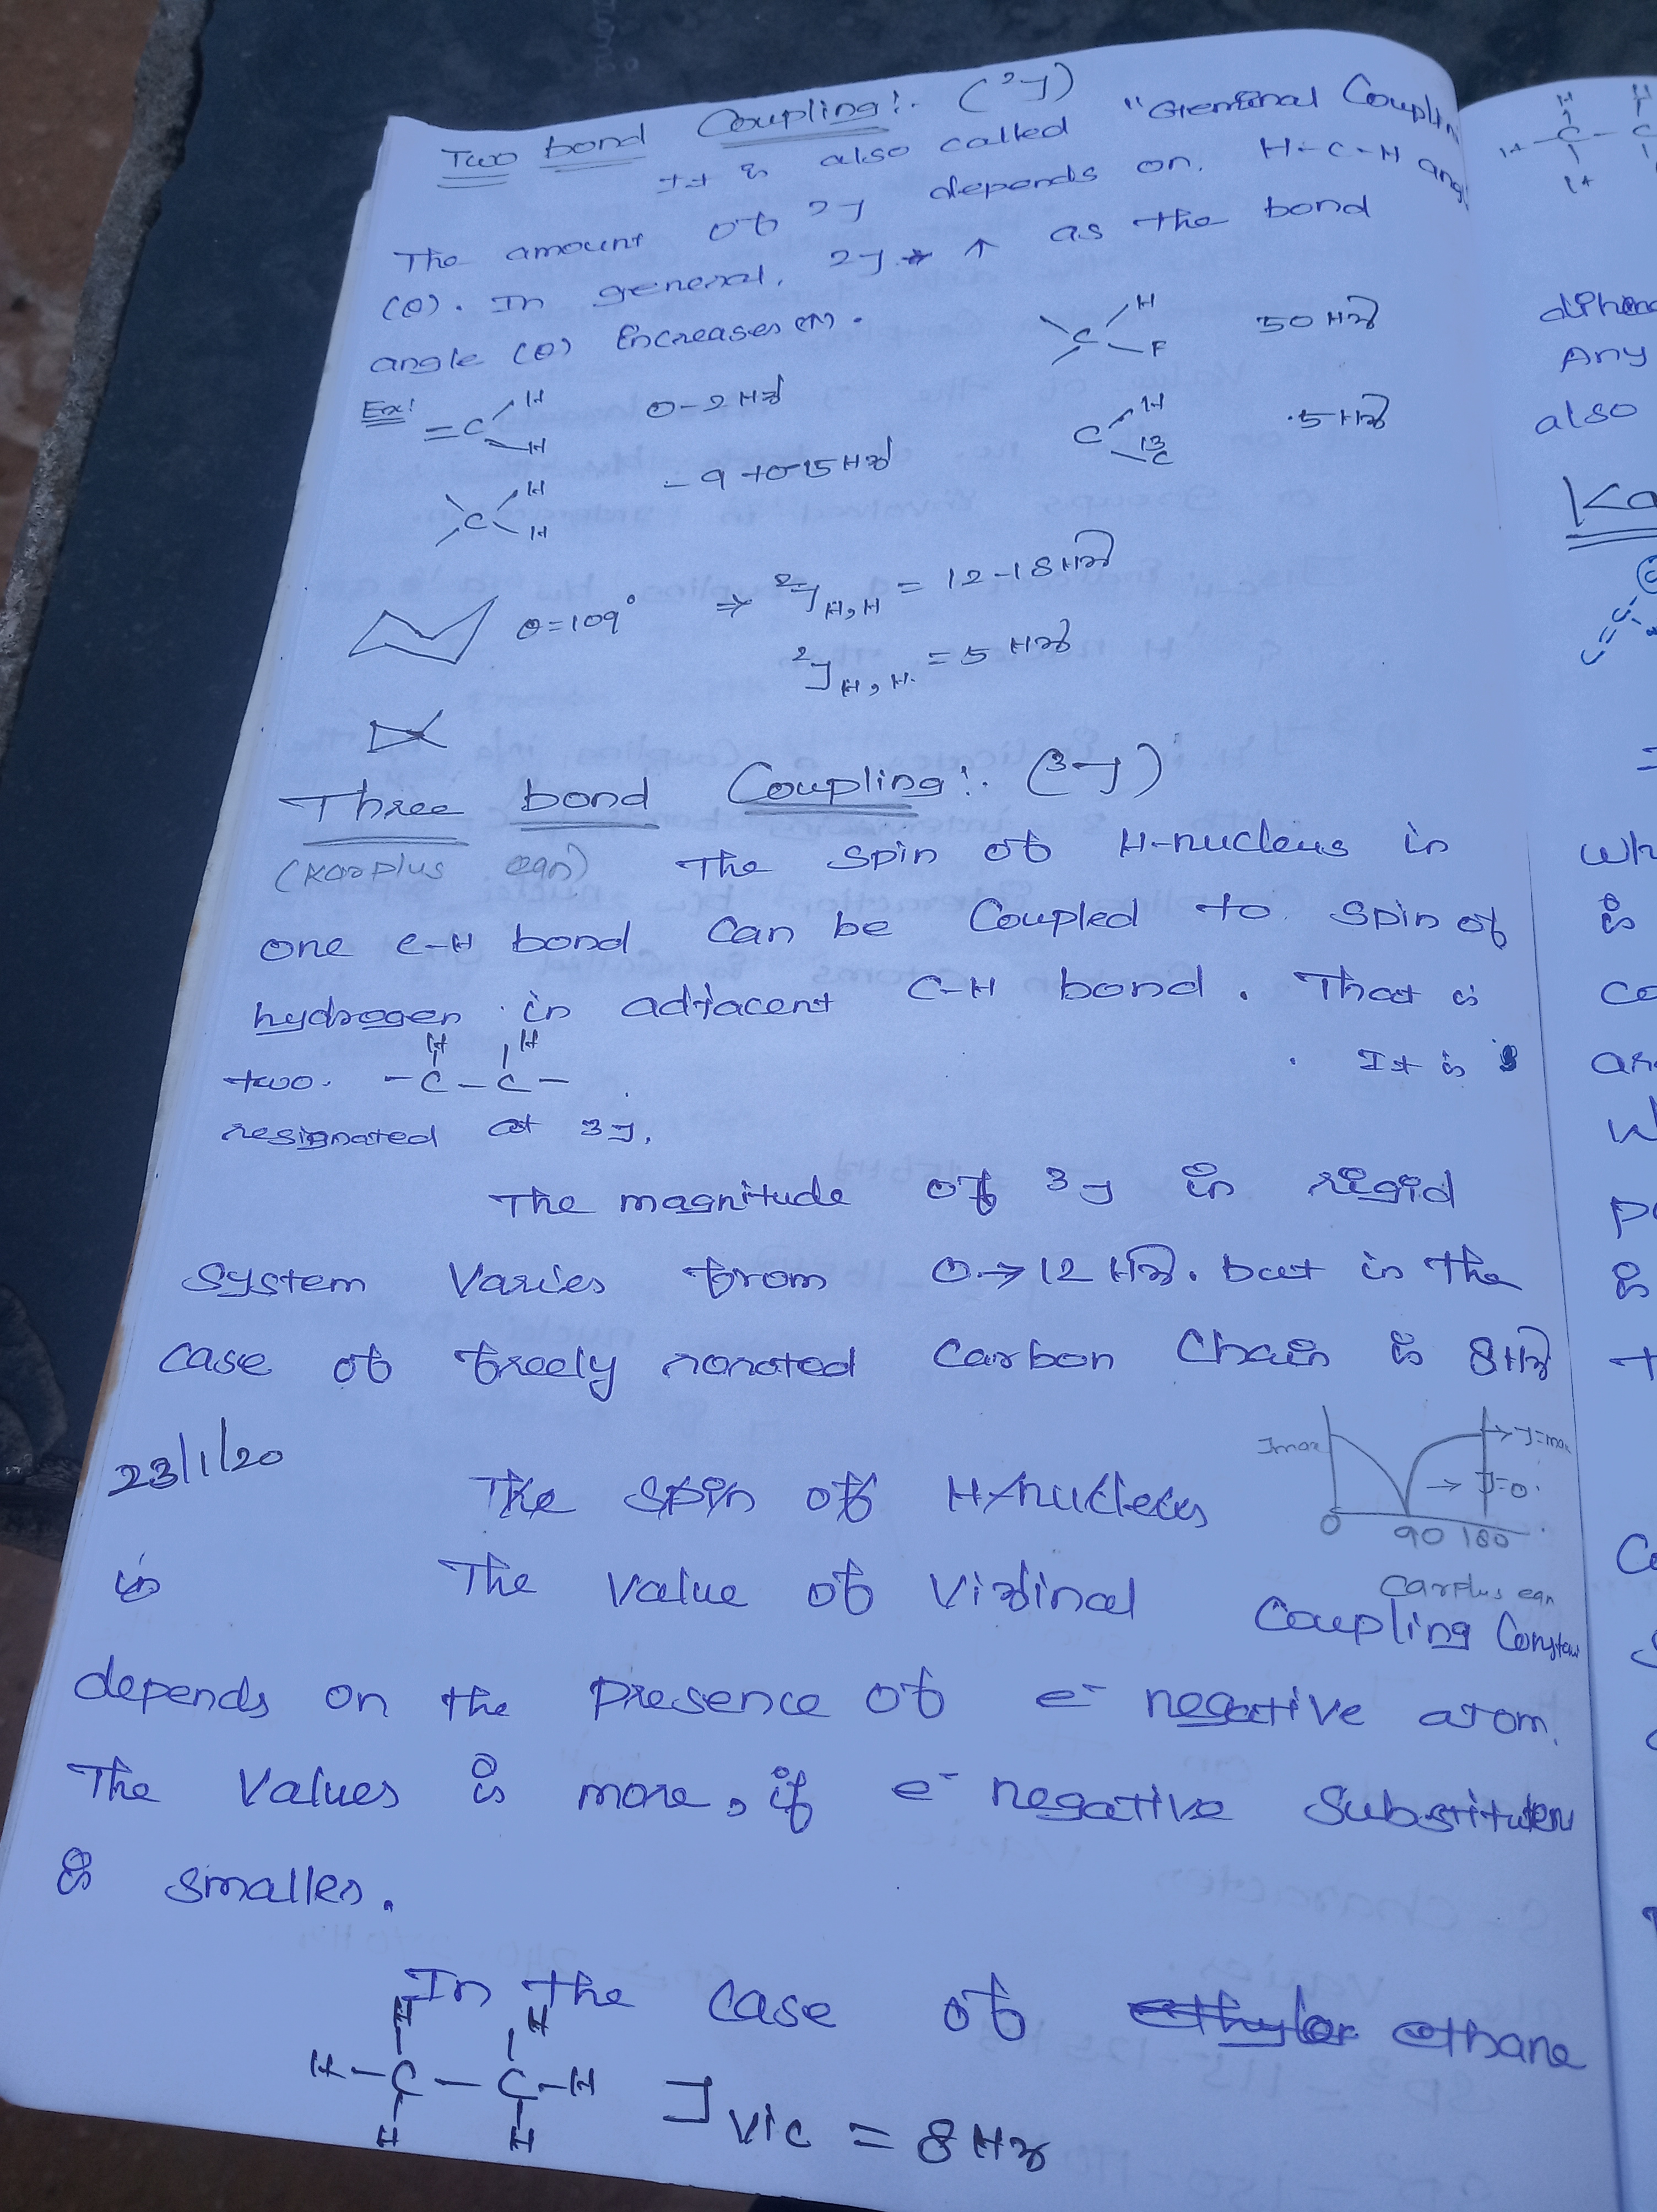 Two bond Coupling:- (²J)
It is also called "Geminal Couplin
The amount of ²J depends on H-C-H ang
(θ). In general, ²J ↑ as the bond
angle (θ) increases (↑).
Ex:
=C H H 0-2 Hz
C H F 50 Hz
C H H -9 to-15 Hz
C H ¹³C 5 Hz
θ=109° ⇒ ²J H,H = 12-18 Hz
²J H,H. = 5 Hz
Three bond Coupling:- (³J)
(Karplus eqn) The spin of H-nucleus in
one C-H bond can be Coupled to spin of
hydrogen in adjacent C-H bond. That is
H H
two. -C-C- . It is
resignated at 3J.
The magnitude of 3J in rigid
System Varies from 0→12 Hz. but in the
case of freely rorated Carbon Chain is 8Hz
Jmax →J=max
→ J=0.
0 90 180
Carplus eqn
23/1/20 The spin of H-nucleus
in The value of Vizinal Coupling Constan
depends on the presence of e⁻ negative atom.
The Values is more, if e⁻ negative Substituen
is smaller.
In the case of ethane
H H
H-C-C-H J vic = 8Hz
H H
H H
H-C-C
H
dihed
Any
also
Ka
wh
is
co
an